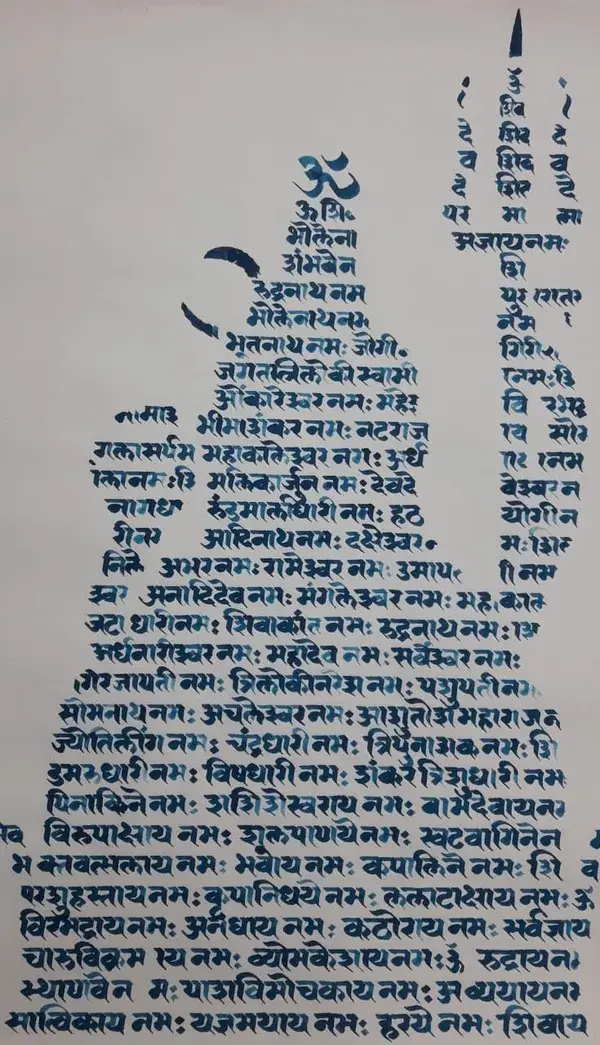 ॐ
ॐ शि
भोलेना
शंभवेन
रुद्रनाथ नम
भोलेनाथ नम
भूतनाथ नमः जोगी
जगतत्रिलोकी स्वामी
ओंकारेश्वर नमः महेश
भीमाशंकर नमः नटराज
महाकालेश्वर नमः अर्ध
मल्लिकार्जुन नमः देवदे
रुंद्रमालाधारी नमः हठ
आदिनाथ नमः दक्षेश्वर
अमरनमः रामेश्वर नमः उमाप
अनादिदेव नमः मंगलेश्वर नमः महाकाल
जटाधारी नमः शिवाकांत नमः रुद्रनाथ नमः
अर्धनारीश्वर नमः महादेव नमः सर्वेश्वर नमः
गिरजापती नमः त्रिलोकीनरेश नमः पशुपती न
सोमनाथ नमः अचलेश्वर नमः आशुतोश महाराज न
ज्योतिर्लिंग नमः चंद्रधारी नमः त्रिपुनाशक नमः शि
डमरुधारी नमः विषधारी नमः शंकर त्रिशुधारी नम
पिनाकिने नमः शशिशेस्वराय नमः वामदेवाय न
विरुपाक्षाय नमः शुलपाणये नमः खटवागिने न
भक्तवत्सलाय नमः भवाय नमः कपालिने नमः शि व
परशुहस्ताय नमः कृपानिधये नमः ललाटाक्षाय नमः ॐ
विरभद्राय नमः अनघाय नमः कठोराय नमः सर्वज्ञाय
चारुविक्रमाय नमः व्योमकेशाय नमः ॐ रुद्राय न
स्थाणवे न मः पाशविमोचकाय नमः अव्ययाय न
सात्विकाय नमः यज्ञमयाय नमः हरये नमः शिवाय
ॐ
शिव
शिव
शिव
शिव
देवदे
देवदे
पर मा त्मा
अजाय नमः
शि
गिरी
योगी न
नागध